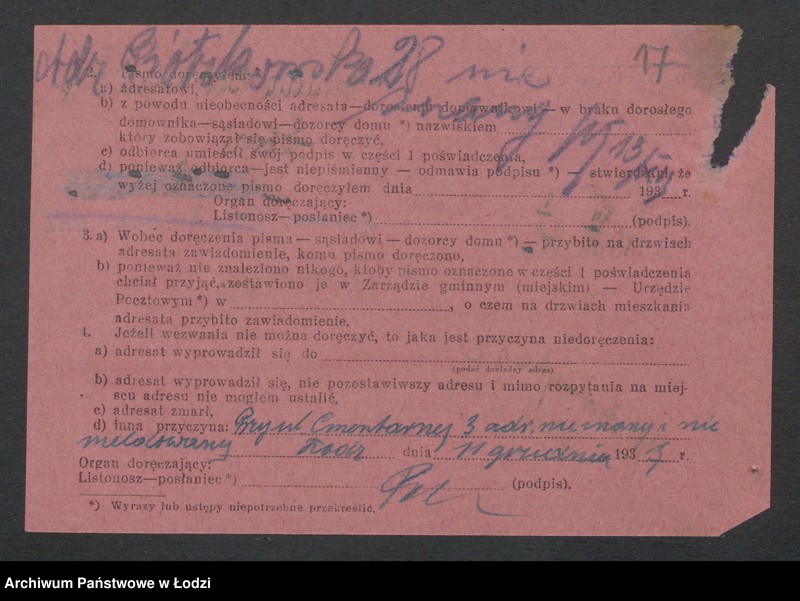 adr Piotrkowska 28 nie
17
znany
13/XII
2. Pismo doręczyłem:
a) adresatowi,
b) z powodu nieobecności adresata—dorosłemu domownikowi — w braku dorosłego
domownika—sąsiadowi—dozorcy domu *) nazwiskiem
który zobowiązał się pismo doręczyć,
c) odbiorca umieścił swój podpis w części 1 poświadczenia,
d) ponieważ odbiorca—jest niepiśmienny — odmawia podpisu *) — stwierdzam, że
wyżej oznaczone pismo doręczyłem dnia 193 r.
Organ doręczający:
Listonosz—posłaniec *) (podpis).
3. a) Wobec doręczenia pisma — sąsiadowi — dozorcy domu *) — przybito na drzwiach
adresata zawiadomienie, komu pismo doręczono,
b) ponieważ nie znaleziono nikogo, ktoby pismo oznaczone w części 1 poświadczenia
chciał przyjąć, zostawiono je w Zarządzie gminnym (miejskim) — Urzędzie
Pocztowym *) w , o czem na drzwiach mieszkania
adresata przybito zawiadomienie.
4. Jeżeli wezwania nie można doręczyć, to jaka jest przyczyna niedoręczenia:
a) adresat wyprowadził się do
(podać dokładny adres)
b) adresat wyprowadził się, nie pozostawiwszy adresu i mimo rozpytania na miej-
scu adresu nie mogłem ustalić,
c) adresat zmarł,
d) inna przyczyna: Przy ul Cmentarnej 3 adr. nieznany i nie
meldowany Łódź dnia 11 grudnia 193 r.
Organ doręczający:
Listonosz—posłaniec *) (podpis).
*) Wyrazy lub ustępy niepotrzebne przekreślić.
Archiwum Państwowe w Łodzi